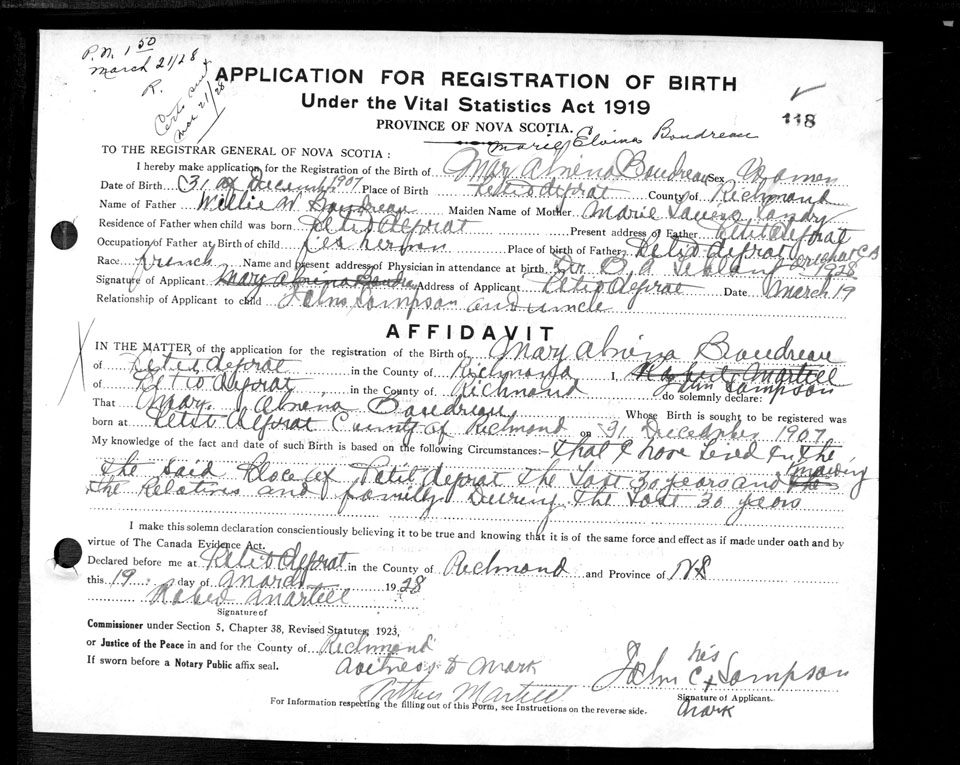 P.N. 1 50
March 21/28
R.
Certs sent
Mar 21/28
APPLICATION FOR REGISTRATION OF BIRTH
Under the Vital Statistics Act 1919
118
PROVINCE OF NOVA SCOTIA.
Marie Elvina Boudreau
TO THE REGISTRAR GENERAL OF NOVA SCOTIA :
I hereby make application for the Registration of the Birth of Mary Alvena Boudreau Sex Woman
Date of Birth 31 of Decemb 1907 Place of Birth Petit deprat County of Richmond
Name of Father Willie W Boudreau Maiden Name of Mother Marie Landry
Residence of Father when child was born Petit deprat Present address of Father Petit deprat
Occupation of Father at Birth of child fesherman Place of birth of Father Petit deprat
Race french Name and present address of Physician in attendance at birth Dr. B. A. Leblanc Arichat C B
Signature of Applicant Mary Alvina Boudrea Address of Applicant Petit deprat Date March 19 1928
Relationship of Applicant to child John Sampson and uncle
AFFIDAVIT
IN THE MATTER of the application for the registration of the Birth of Mary Alvena Boudreau
of Petit deprat in the County of Richmond I, Robert Martell John Sampson
of Petit deprat in the County of Richmond do solemnly declare:
That Mary Alvena Boudreau Whose Birth is sought to be registered was
born at Petit deprat County of Richmond on 31 December 1907
My knowledge of the fact and date of such Birth is based on the following Circumstances:— that I have Lived in the
the said Place of Petit deprat the Last 30 years and knowing
the Relatives and family During the Last 30 years
I make this solemn declaration conscientiously believing it to be true and knowing that it is of the same force and effect as if made under oath and by
virtue of The Canada Evidence Act.
Declared before me at Petit deprat in the County of Richmond and Province of NS
this 19 day of March 1928
Robert Martell
Signature of
Commissioner under Section 5, Chapter 38, Revised Statutes, 1923,
or Justice of the Peace in and for the County of Richmond
If sworn before a Notary Public affix seal.
Witness to Mark
Arthur Martell
John his X Sampson
Signature of Applicant.
Mark
For Information respecting the filling out of this Form, see Instructions on the reverse side.